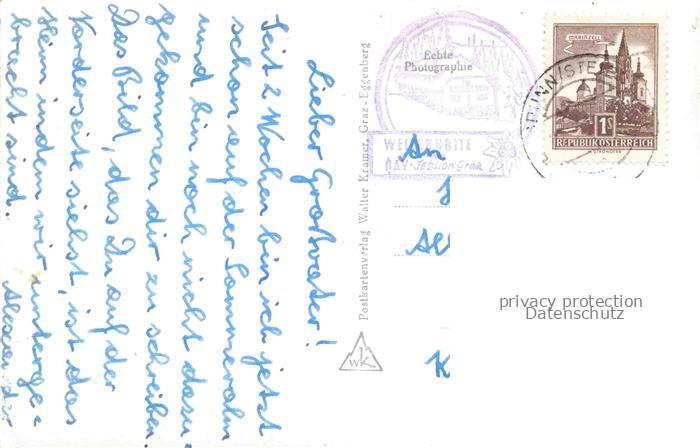 Lieber Großvater!
Seit 2 Wochen bin ich jetzt
schon auf der Sommeralm
und bin noch nicht dazu
gekommen dir zu schreiben.
Das Bild, das Du auf der
Vorderseite siehst, ist das
Heim indem wir unterge=
bracht sind.
Alexander
Postkartenverlag Walter Kramer, Graz-Eggenberg
WK
Echte
Photographie
ÖAV-Sektion Graz
MARIAZELL
1S
REPUBLIK ÖSTERREICH
An
K
privacy protection
Datenschutz